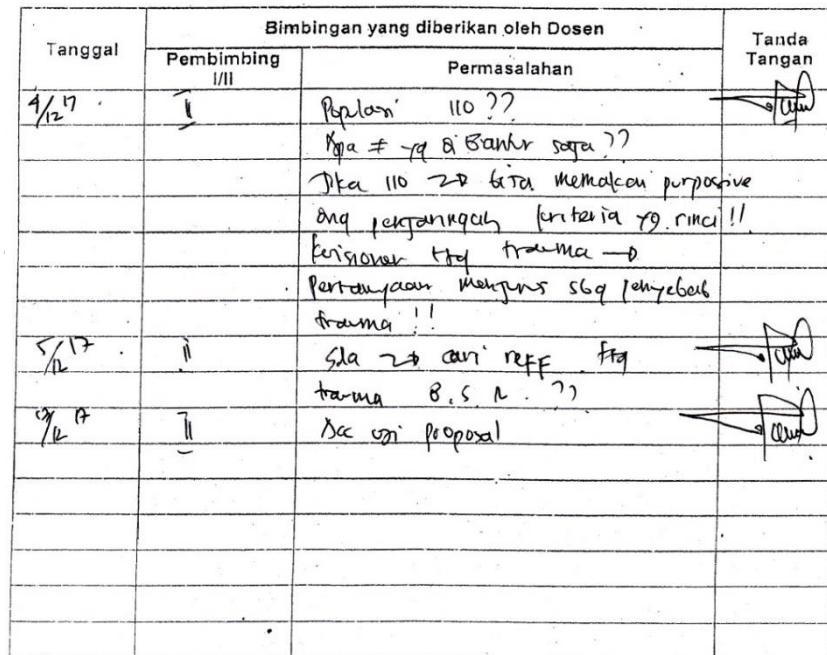 Bimbingan yang diberikan oleh Dosen
Tanggal
Pembimbing I/II
Permasalahan
Tanda Tangan
4/12 17 II Populasi 110 ??
Apa ≠ yg di Bantur saja ??
Jika 110 → bisa memakai purposive
dng penjaringan kriteria yg rinci !!
kuisioner ttg trauma →
Pertanyaan menjurus sbg penyebab
trauma !!
5/12 17 II → cari reff ttg
trauma B. S. R. ??
/12 17 II Acc uji proposal